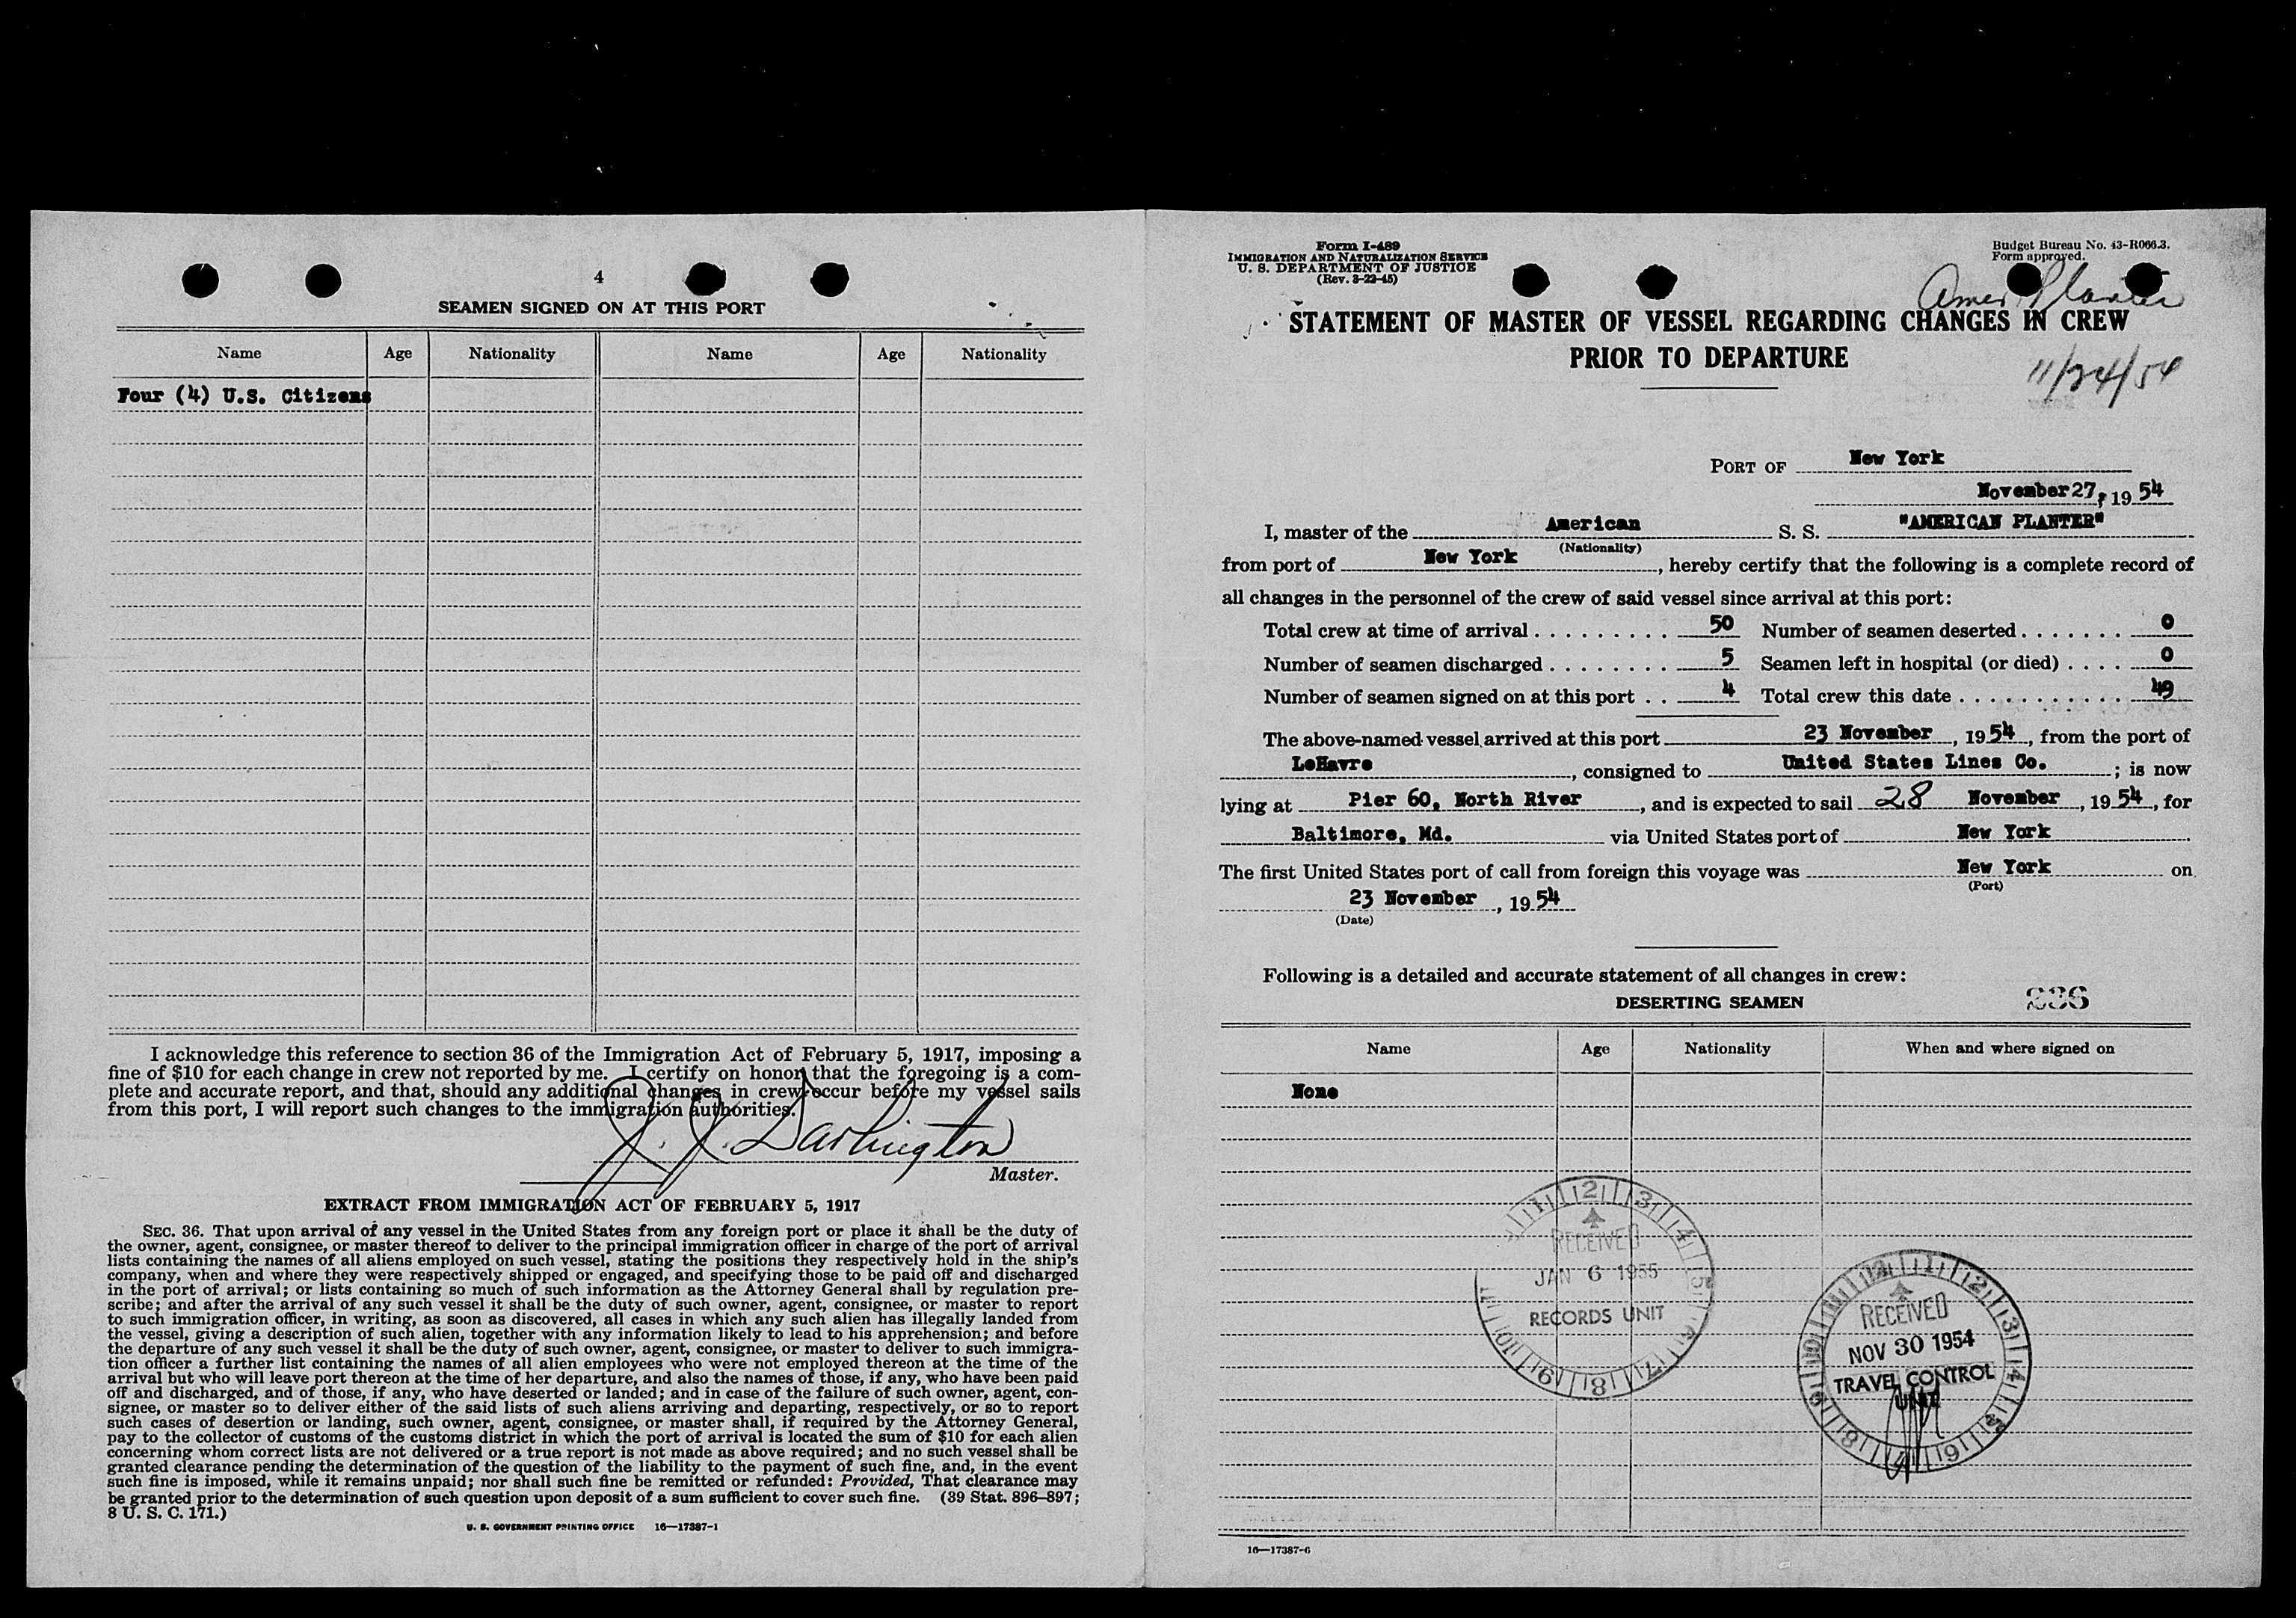 4
SEAMEN SIGNED ON AT THIS PORT
Name Age Nationality Name Age Nationality
Four (4) U.S. Citizens
I acknowledge this reference to section 36 of the Immigration Act of February 5, 1917, imposing a
fine of $10 for each change in crew not reported by me. I certify on honor that the foregoing is a com-
plete and accurate report, and that, should any additional changes in crew occur before my vessel sails
from this port, I will report such changes to the immigration authorities.
J. J. Darlington
Master.
EXTRACT FROM IMMIGRATION ACT OF FEBRUARY 5, 1917
SEC. 36. That upon arrival of any vessel in the United States from any foreign port or place it shall be the duty of
the owner, agent, consignee, or master thereof to deliver to the principal immigration officer in charge of the port of arrival
lists containing the names of all aliens employed on such vessel, stating the positions they respectively hold in the ship's
company, when and where they were respectively shipped or engaged, and specifying those to be paid off and discharged
in the port of arrival; or lists containing so much of such information as the Attorney General shall by regulation pre-
scribe; and after the arrival of any such vessel it shall be the duty of such owner, agent, consignee, or master to report
to such immigration officer, in writing, as soon as discovered, all cases in which any such alien has illegally landed from
the vessel, giving a description of such alien, together with any information likely to lead to his apprehension; and before
the departure of any such vessel it shall be the duty of such owner, agent, consignee, or master to deliver to such immigra-
tion officer a further list containing the names of all alien employees who were not employed thereon at the time of the
arrival but who will leave port thereon at the time of her departure, and also the names of those, if any, who have been paid
off and discharged, and of those, if any, who have deserted or landed; and in case of the failure of such owner, agent, con-
signee, or master so to deliver either of the said lists of such aliens arriving and departing, respectively, or so to report
such cases of desertion or landing, such owner, agent, consignee, or master shall, if required by the Attorney General,
pay to the collector of customs of the customs district in which the port of arrival is located the sum of $10 for each alien
concerning whom correct lists are not delivered or a true report is not made as above required; and no such vessel shall be
granted clearance pending the determination of the question of the liability to the payment of such fine, and, in the event
such fine is imposed, while it remains unpaid; nor shall such fine be remitted or refunded: Provided, That clearance may
be granted prior to the determination of such question upon deposit of a sum sufficient to cover such fine. (39 Stat. 896–897;
8 U. S. C. 171.)
U. S. GOVERNMENT PRINTING OFFICE 16—17387-1
Form I-489
IMMIGRATION AND NATURALIZATION SERVICE
U. S. DEPARTMENT OF JUSTICE
(Rev. 3-22-45)
Budget Bureau No. 43-R066.3.
Form approved.
Amer Planter
STATEMENT OF MASTER OF VESSEL REGARDING CHANGES IN CREW
PRIOR TO DEPARTURE
11/24/54
PORT OF New York
November 27, 19 54
I, master of the American S. S. "AMERICAN PLANTER"
(Nationality)
from port of New York, hereby certify that the following is a complete record of
all changes in the personnel of the crew of said vessel since arrival at this port:
Total crew at time of arrival . . . . . . . . . 50 Number of seamen deserted . . . . . . . 0
Number of seamen discharged . . . . . . . . 5 Seamen left in hospital (or died) . . . . 0
Number of seamen signed on at this port . . 4 Total crew this date . . . . . . . . . . . . 49
The above-named vessel arrived at this port 23 November, 19 54, from the port of
LeHavre, consigned to United States Lines Co. ; is now
lying at Pier 60, North River, and is expected to sail 28 November, 19 54, for
Baltimore, Md. via United States port of New York
The first United States port of call from foreign this voyage was New York on
(Port)
23 November, 19 54
(Date)
Following is a detailed and accurate statement of all changes in crew:
DESERTING SEAMEN
236
Name Age Nationality When and where signed on
None
RECEIVED
JAN 6 1955
RECORDS UNIT
RECEIVED
NOV 30 1954
TRAVEL CONTROL
UNIT
16—17387-6